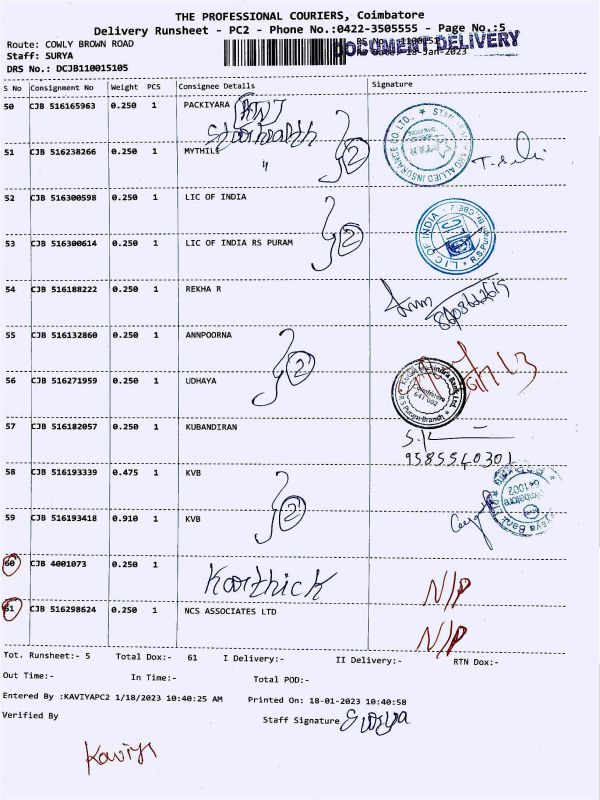 THE PROFESSIONAL COURIERS, Coimbatore
Delivery Runsheet - PC2 - Phone No.:0422-3505555 - Page No.:5
DOCUMENT DELIVERY
Route: COWLY BROWN ROAD
Staff: SURYA
18-Jan-2023
DRS No.: DCJB110015105
S No Consignment No Weight PCS Consignee Details Signature
50 CJB 516165963 0.250 1 PACKIYARA
51 CJB 516238266 0.250 1 MYTHILI " 2
52 CJB 516300598 0.250 1 LIC OF INDIA
53 CJB 516300614 0.250 1 LIC OF INDIA RS PURAM 2
L.I.C OF INDIA
54 CJB 516188222 0.250 1 REKHA R
55 CJB 516132860 0.250 1 ANNPOORNA
56 CJB 516271959 0.250 1 UDHAYA 2
Coimbatore
641 002
R S Puram Branch
57 CJB 516182057 0.250 1 KUBANDIRAN
9585540301
58 CJB 516193339 0.475 1 KVB
59 CJB 516193418 0.910 1 KVB 2
641002
60 CJB 4001073 0.250 1 Karthick N/P
61 CJB 516298624 0.250 1 NCS ASSOCIATES LTD N/P
Tot. Runsheet:- 5 Total Dox:- 61 I Delivery:- II Delivery:- RTN Dox:-
Out Time:- In Time:- Total POD:-
Entered By :KAVIYAPC2 1/18/2023 10:40:25 AM Printed On: 18-01-2023 10:40:58
Verified By Staff Signature Surya
Kaviya